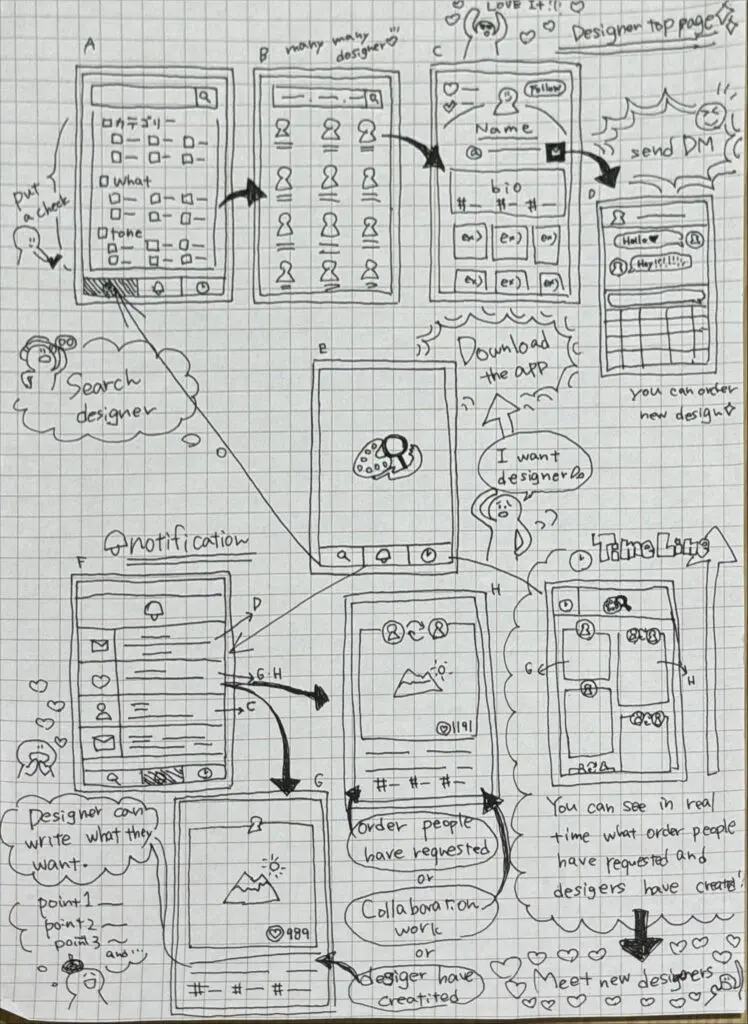 LOVE It!!
Designer top page
A
B
many many
designer
C
put
a check
カテゴリー
what
tone
Follow
Name
bio
#— #— #—
ex) ex) ex)
ex) ex) ex)
send DM
D
Hello
Hey!!!!!!
you can order
new design
Search
designer
E
Download
the app
I want
designer
notification
F
D
G·H
C
H
1191
#— #— #—
Time Line
G
H
G
989
#— #— #—
Designer can
write what they
want.
point 1
point 2
point 3
and...
order people
have requested
or
Collaboration
work
or
desiger have
creatited
You can see in real
time what order people
have requested and
desigers have created!
Meet new designers